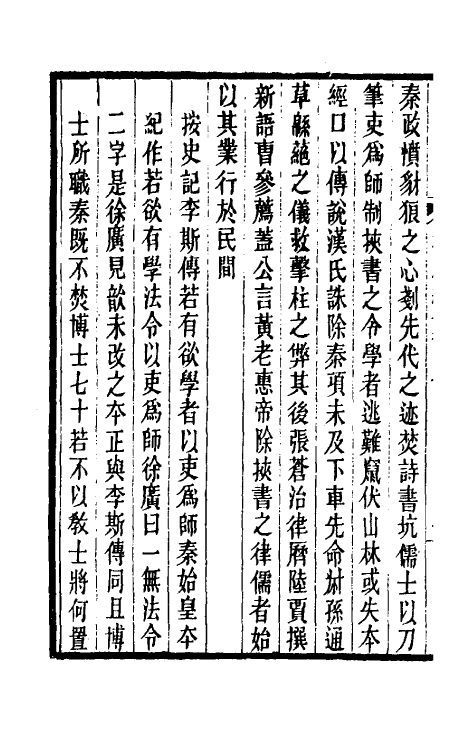 秦政憤豺狼之心剗先代之迹焚詩書坑儒士以刀
筆吏爲師制挾書之令學者逃難竄伏山林或失本
經口以傳說漢氏誅除秦項未及下車先命叔孫通
草緜蕝之儀救擊柱之弊其後張蒼治律曆陸賈撰
新語曹參薦蓋公言黃老惠帝除挾書之律儒者始
以其業行於民間
按史記李斯傳若有欲學者以吏爲師秦始皇本
紀作若欲有學法令以吏爲師徐廣曰一無法令
二字是徐廣見歆未改之本正與李斯傳同且博
士所職秦旣不焚博士七十若不以敎士將何置